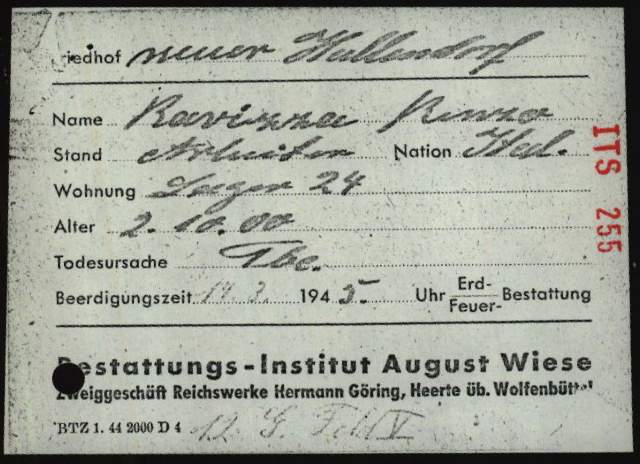 Friedhof neuer Hallendorf
Name Ravizza Renzo
Stand Arbeiter Nation Ital.
Wohnung Lager 24
Alter 2.10.00
Todesursache Tbc.
Beerdigungszeit 14.3. 1945. Uhr Erd-/Feuer- Bestattung
Bestattungs-Institut August Wiese
Zweiggeschäft Reichswerke Hermann Göring, Heerte üb. Wolfenbüttel
BTZ 1. 44 2000 D 4 12 G. Feld V
ITS 255